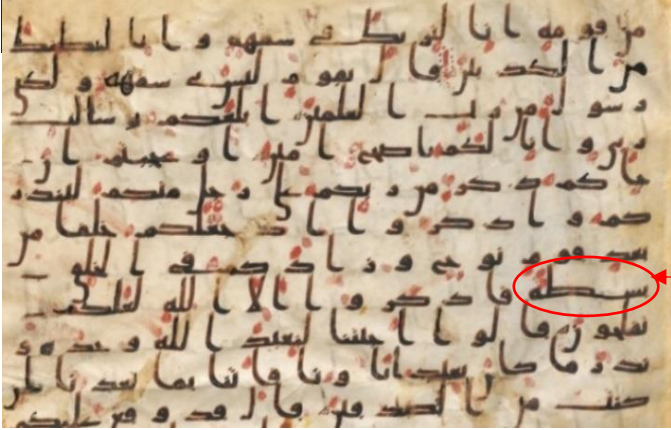 من قومه انا لنريك في سفهه وانا لنظنك
من الكذبين قال يقوم ليس بي سفهه ولكني
رسول من رب العلمين ابلغكم رسالت
ربي وانا لكم ناصح امين اوعجبتم ان
جاكم ذكر من ربكم على رجل منكم لينذر
كم واذكروا اذ جعلكم خلفا من
بعد قوم نوح وزادكم في الخلق
بسطه فاذكروا الا الله لعلكم
تفلحون قالوا اجئتنا لنعبد الله وحده و
نذر ما كان يعبد اباونا فاتنا بما تعدنا ان
كنت من الصدقين قال قد وقع عليكم